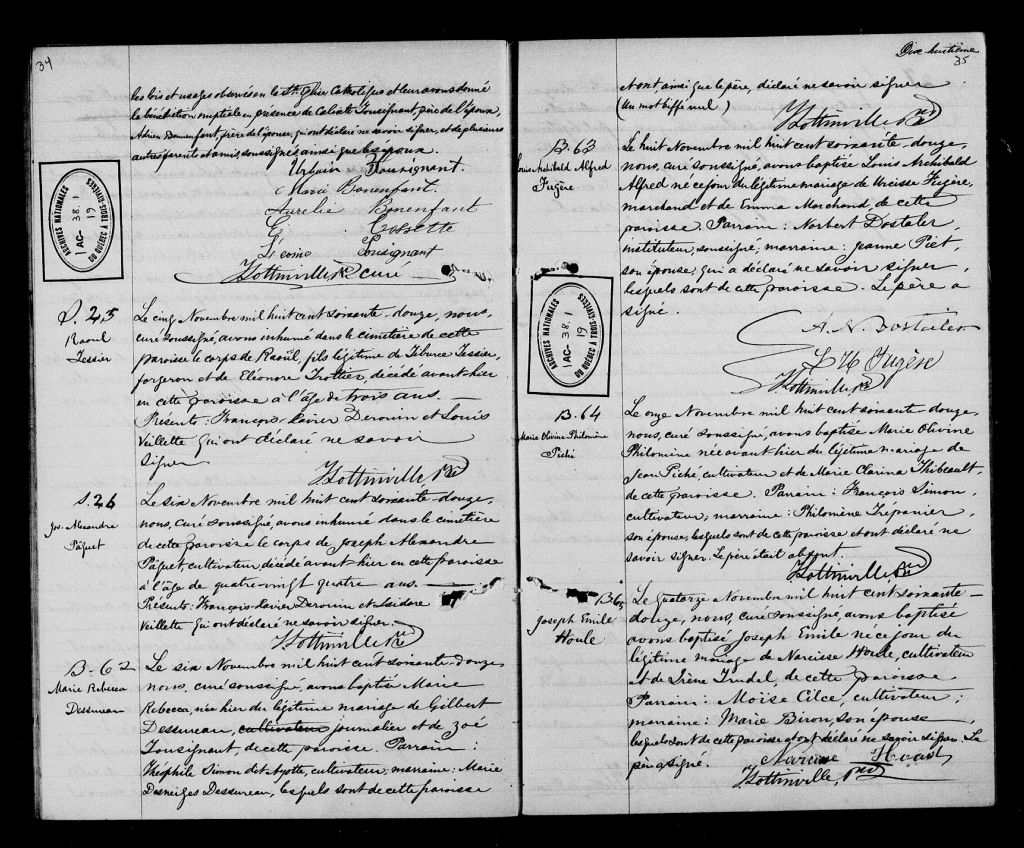 34
les lois et usages observés en la Ste. Eglise Catholique et leur avons donné
la bénédiction nuptiale en présence de Calixte Tousignant, père de l'époux,
Adrien Bonenfant, frère de l'épouse, qui ont déclaré ne savoir signer, et de plusieurs
autres parents et amis, soussignés ainsi que les époux.
Urbain Tousignant.
Marie Bonenfant.
Aurelie Bonenfant
Tousignant
Lottinville Ptre curé
ARCHIVES NATIONALES
1 AC- 38.1
19
DU QUÉBEC À TROIS-RIVIÈRES
S. 25
Raoul
Tessier
Le cinq Novembre mil huit cent soixante-douze, nous,
curé soussigné, avons inhumé dans le cimetière de cette
paroisse le corps de Raoül, fils légitime de Tiburce Tessier,
forgeron et de Eléonore Trottier, décédé avant-hier
en cette paroisse à l'âge de trois ans.
Présents: François-Xavier Derouin et Louis
Veillette qui ont déclaré ne savoir
signer
Lottinville Ptre
S. 26
Jos. Alexandre
Pâquet
Le six Novembre mil huit cent soixante-douze,
nous, curé soussigné, avons inhumé dans le cimetière
de cette paroisse le corps de Joseph Alexandre
Pâquet, cultivateur, décédé avant-hier en cette paroisse
à l'âge de quatre-vingt quatre ans.
Présents: François-Xavier Derouin et Isidore
Veillette qui ont déclaré ne savoir signer.
Lottinville Ptre
B-62
Marie Rebecca
Dessureau
Le six Novembre mil huit cent soixante-douze
nous, curé soussigné, avons baptisé Marie
Rebecca, née hier du légitime mariage de Gilbert
Dessureau, cultivateur journalier et de Zoé
Tousignant, de cette paroisse. Parrain:
Théophile Simon dit Ayotte, cultivateur; marraine: Marie
Desneiges Dessureau, lesquels sont de cette paroisse
Dix huitième
35
et ont ainsi que le père, déclaré ne savoir signer
(Un mot biffé nul)
Lottinville Ptre
B-63
Louis Archibald Alfred
Fugère
Le huit Novembre mil huit cent soixante-douze,
nous, curé soussigné, avons baptisé Louis Archibald
Alfred né ce jour du légitime mariage de Narcisse Fugère,
marchand et de Emma Marchand, de cette
paroisse. Parrain: Norbert Dostaler,
instituteur, soussigné; marraine: Jeanne Piet,
son épouse, qui a déclaré ne savoir signer,
lesquels sont de cette paroisse. Le père a
signé.
A. N. Dostaler
L N Fugère
Lottinville Ptre
ARCHIVES NATIONALES
1 AC- 38.1
19
DU QUÉBEC À TROIS-RIVIÈRES
B-64
Marie Olivine Philomène
Piché
Le onze Novembre mil huit cent soixante-douze,
nous, curé soussigné, avons baptisé Marie Olivine
Philomène née avant-hier du légitime mariage de
Jean Piché, cultivateur et de Marie Clarina Thibeault,
de cette paroisse. Parrain: François Simon,
cultivateur; marraine: Philomène Trépanier,
son épouse, lesquels sont de cette paroisse et ont déclaré ne
savoir signer. Le père était absent.
Lottinville Ptre
B-65
Joseph Emile
Houle
Le quatorze Novembre mil huit cent soixante-
douze, nous, curé soussigné, avons baptisé
avons baptisé Joseph Emile né ce jour du
légitime mariage de Narcisse Houle, cultivateur
et de Irène Trudel, de cette paroisse.
Parrain: Moïse Cilce, cultivateur;
marraine: Marie Biron, son épouse,
lesquels sont de cette paroisse et ont déclaré ne savoir signer. Le
père a signé.
Narcisse Houle
Lottinville, Ptre